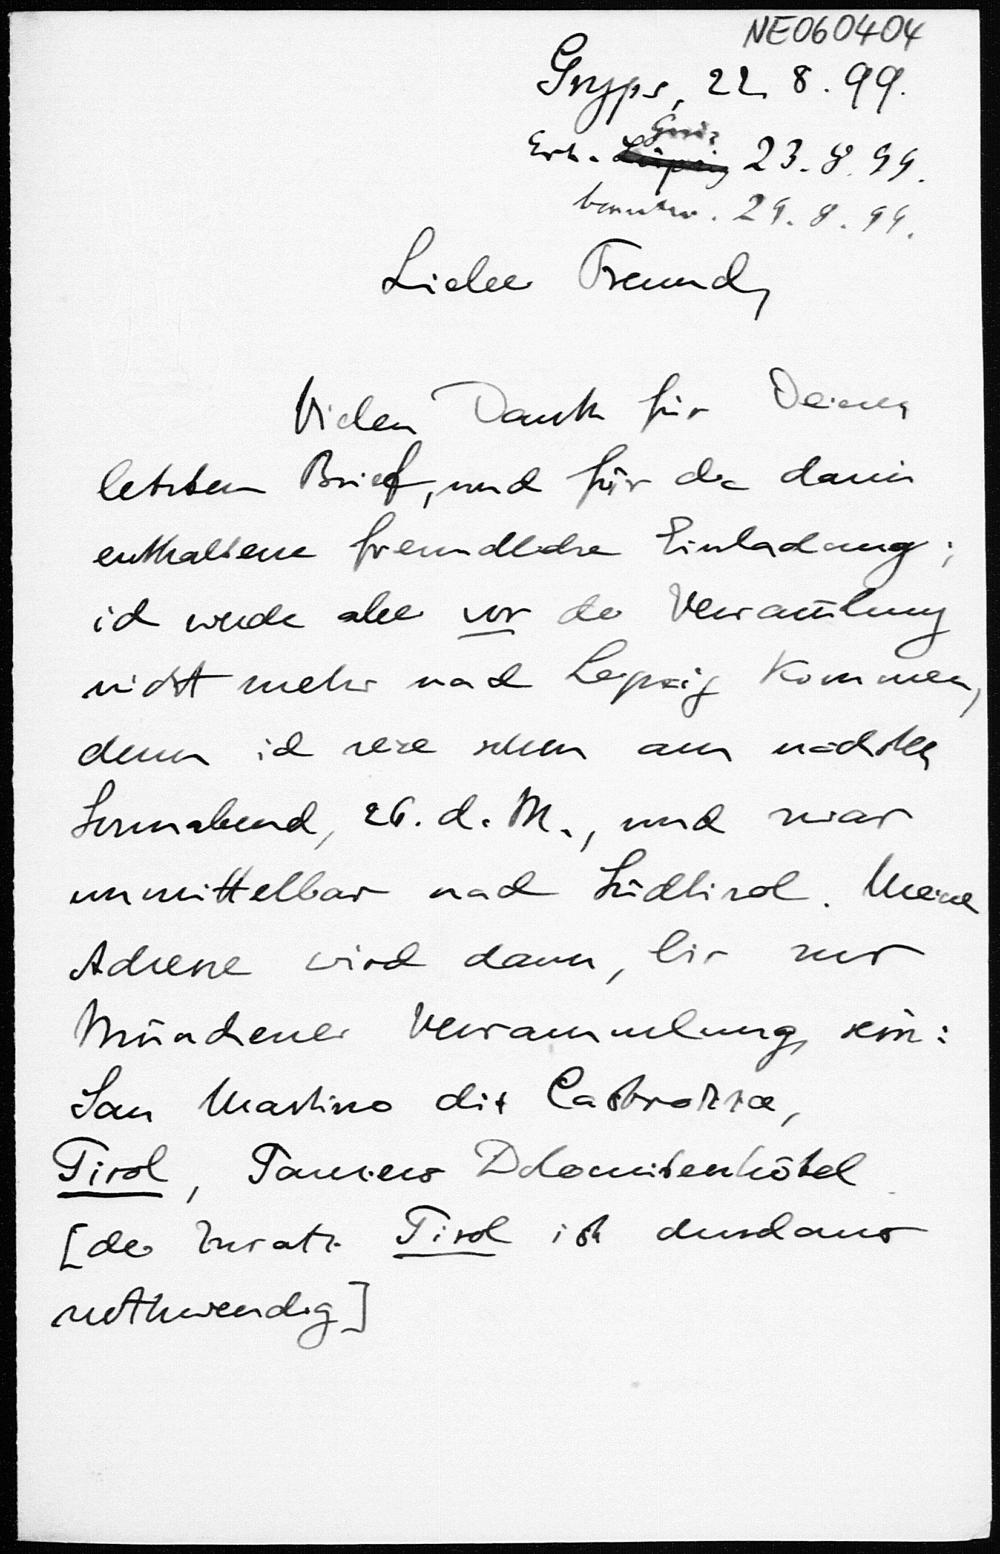 NE060404
Gryps, 22. 8. 99.
Erh. Leipzig 23. 8. 99.
beantw. 29. 8. 99.
Lieber Freund,
Vielen Dank für Deinen
letzten Brief, und für die darin
enthaltene freundliche Einladung;
ich werde aber vor der Versam̅lung
nicht mehr nach Leipzig kommen,
denn ich reise schon am nächsten
Sonnabend, 26. d. M., und zwar
unmittelbar nach Südtirol. Meine
Adresse wird dann, bis zur
Münchener Versammlung, sein:
San Martino di Castrozza,
Tirol, Panzers Dolomitenhôtel
[der Zusatz Tirol ist durchaus
nothwendig]